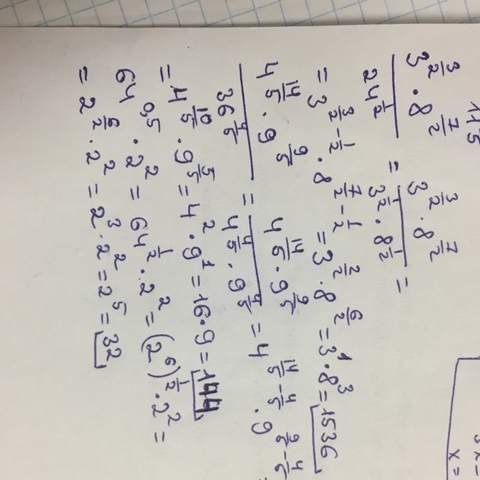 3^(3/2) · 8^(7/2) / 24^(1/2) = 3^(3/2) · 8^(7/2) / 3^(1/2) · 8^(1/2) =
= 3^(3/2 - 1/2) · 8^(7/2 - 1/2) = 3^(2/2) · 8^(6/2) = 3^1 · 8^3 = 1536
4^(14/5) · 9^(9/5) / 36^(4/5) = 4^(14/5) · 9^(9/5) / 4^(4/5) · 9^(4/5) = 4^(14/5 - 4/5) · 9^(9/5 - 4/5)
= 4^(10/5) · 9^(5/5) = 4^2 · 9^1 = 16 · 9 = 144
64^(0,5) · 2^2 = 64^(1/2) · 2^2 = (2^6)^(1/2) · 2^2 =
= 2^(6/2) · 2^2 = 2^3 · 2^2 = 2^5 = 32
x =